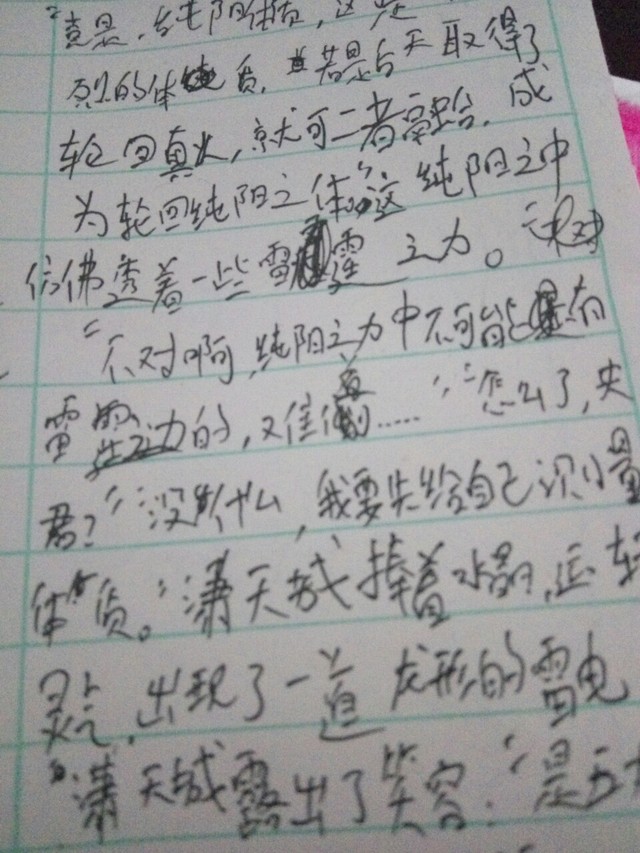 竟是,纯阳体质,这是
烈的体质,若是后天取得了
轮回真火,就可二者融合,成
为轮回纯阳之体。”这纯阳之中
仿佛透着一些雷霆之力。
“不对啊,纯阳之力中不可能是有
雷霆之力的,难道真……”“怎么了,夫
君?”“没什么,我要先给自己测量
体质。”潇天城捧着水晶,运转
灵气,出现了一道龙形的雷电
潇天城露出了笑容:“是五